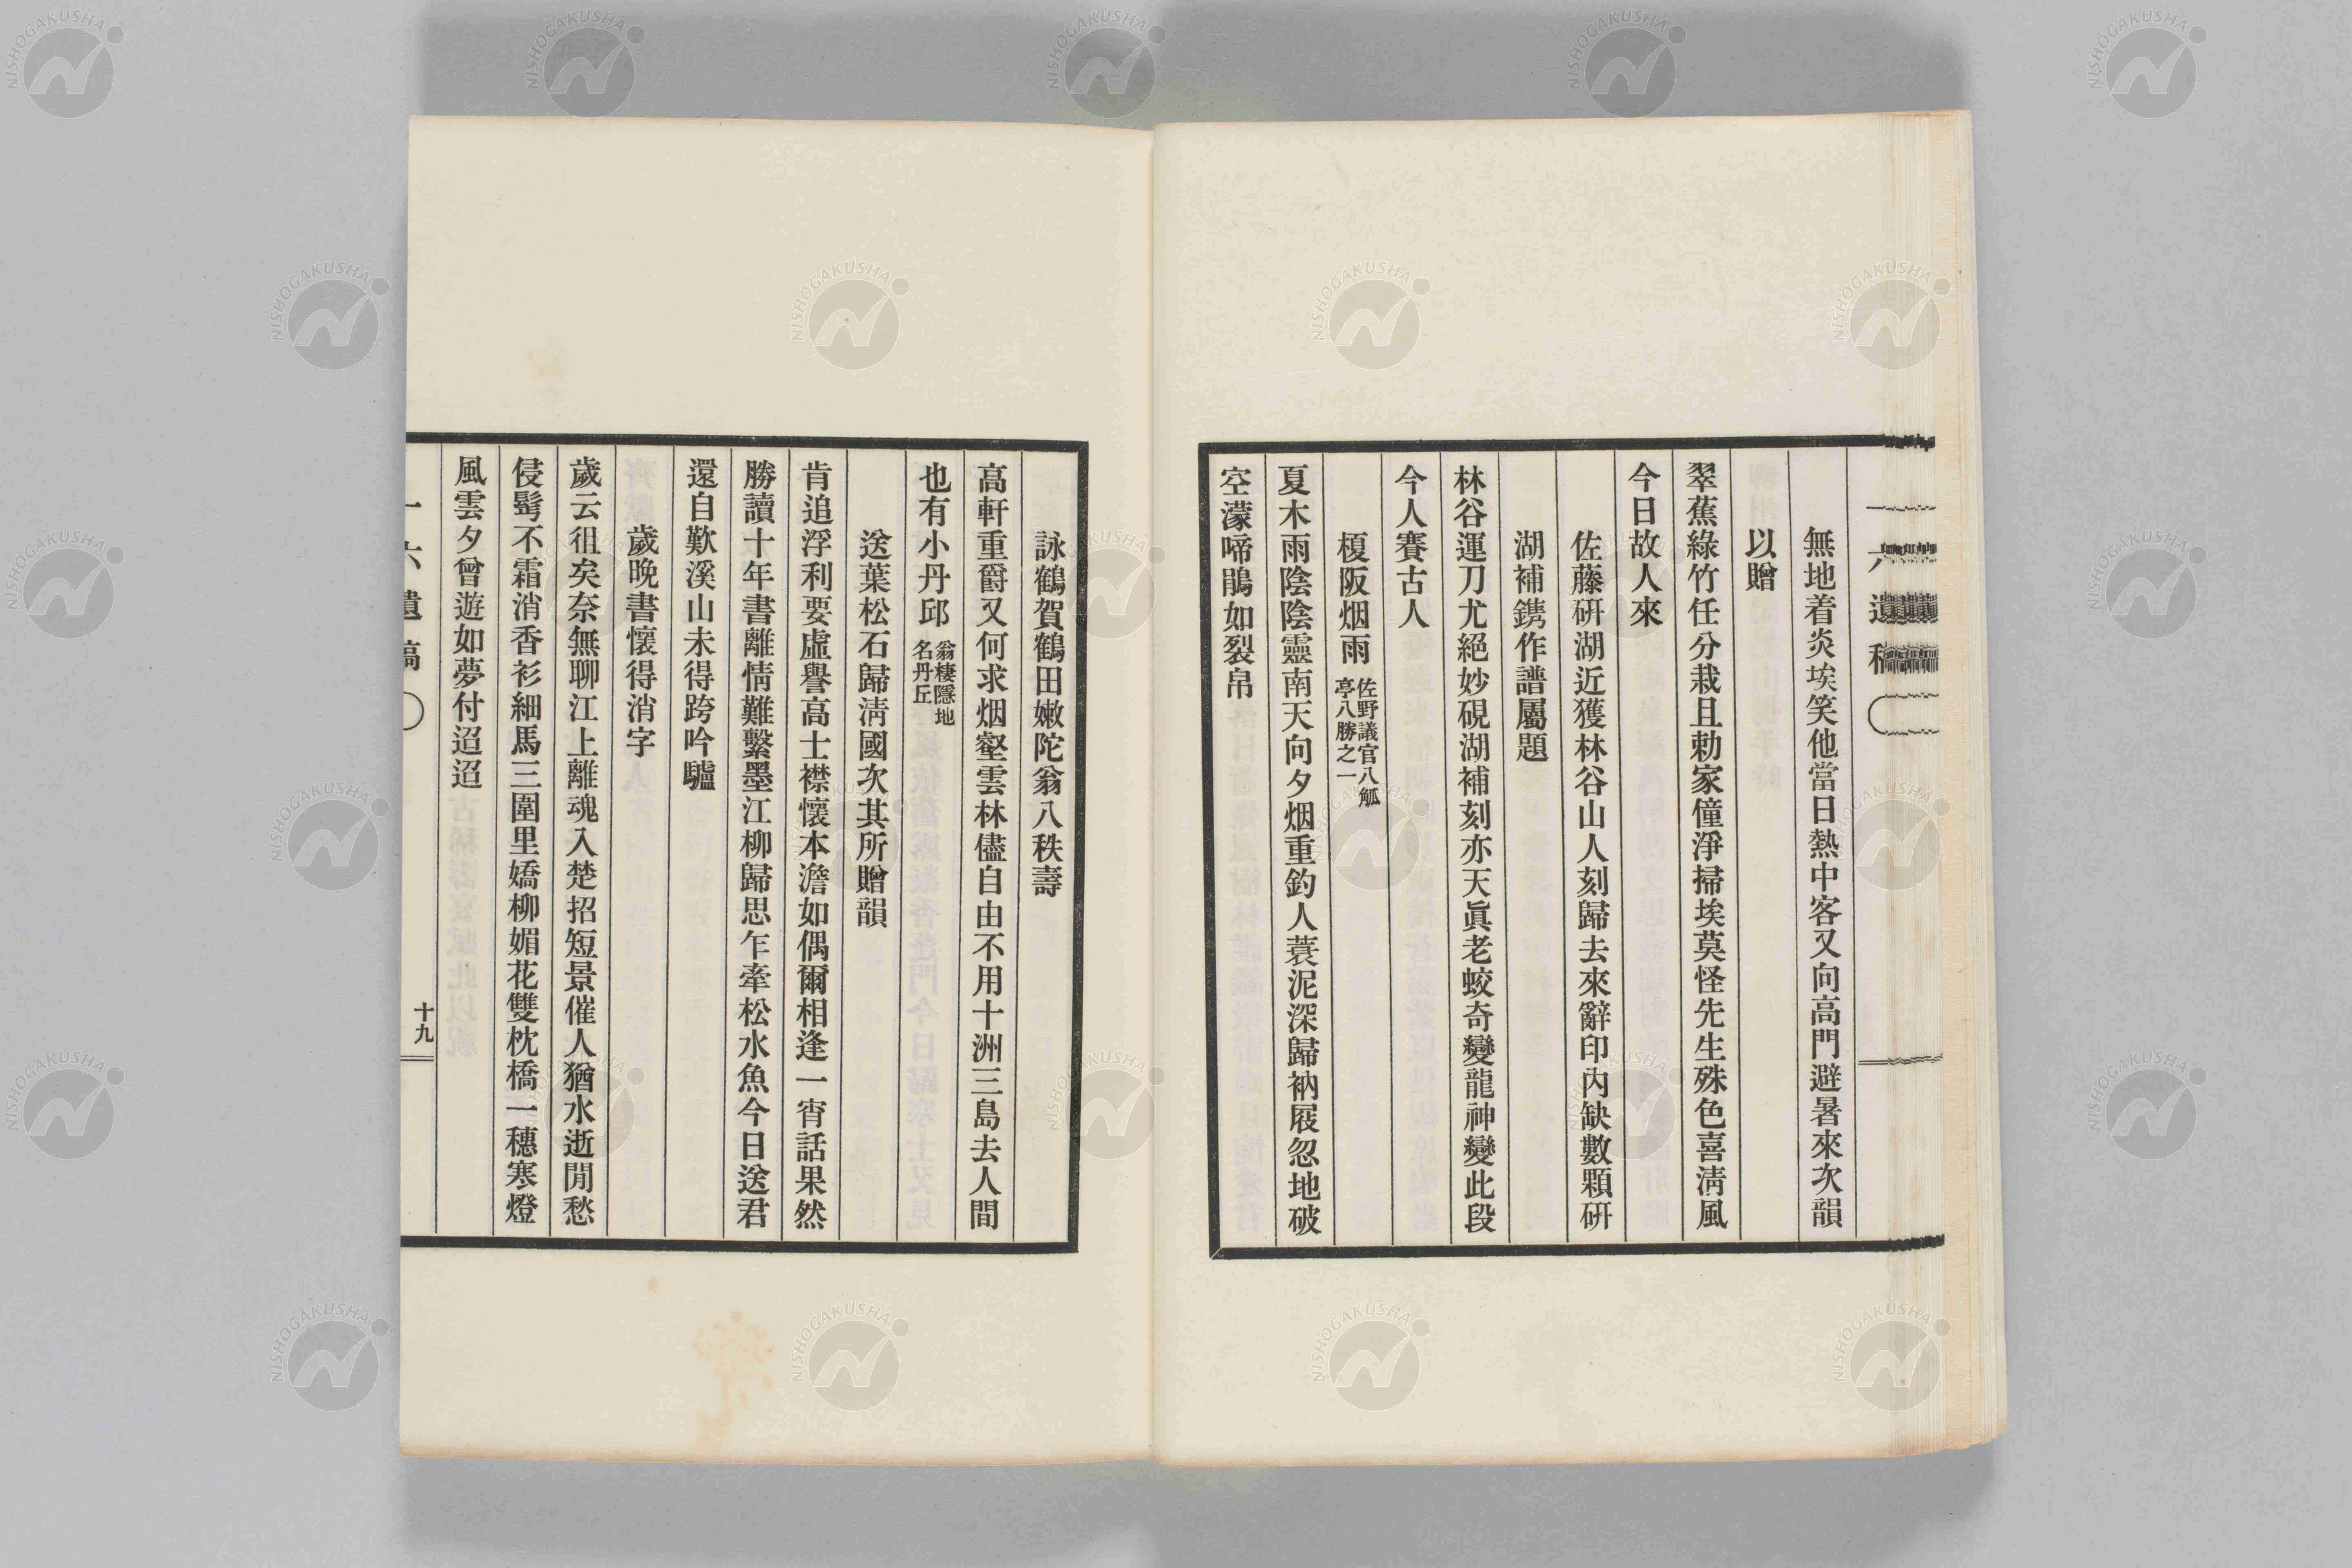 無地着炎埃笑他當日熱中客又向高門避暑來次韻
以贈
翠蕉綠竹任分栽且勅家僮淨掃埃莫怪先生殊色喜淸風
今日故人來
佐藤硏湖近獲林谷山人刻歸去來辭印內缺數顆硏
湖補鐫作譜屬題
林谷運刀尤絕妙硯湖補刻亦天眞老蛟奇變龍神變此段
今人賽古人
榎阪烟雨 佐野議官八觚
亭八勝之一
夏木雨陰陰靈南天向夕烟重釣人蓑泥深歸衲屐忽地破
空濛啼鵑如裂帛
詠鶴賀鶴田嫩陀翁八秩壽
高軒重爵又何求烟壑雲林儘自由不用十洲三島去人間
也有小丹邱 翁棲隱地
名丹丘
送葉松石歸淸國次其所贈韻
肯追浮利要虛譽高士襟懷本澹如偶爾相逢一宵話果然
勝讀十年書離情難繫墨江柳歸思乍牽松水魚今日送君
還自歎溪山未得跨吟驢
歲晚書懷得消字
歲云徂矣奈無聊江上離魂入楚招短景催人猶水逝閒愁
侵鬂不霜消香衫細馬三圍里嬌柳媚花雙枕橋一穗寒燈
風雲夕曾遊如夢付迢迢
一六遺稿
十九
NISHOGAKUSHA